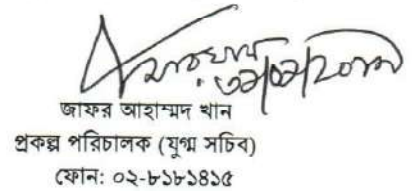 জাফর আহাম্মদ খান
প্রকল্প পরিচালক (যুগ্ম সচিব)
ফোন: ০২-৮১৮১৪১৫